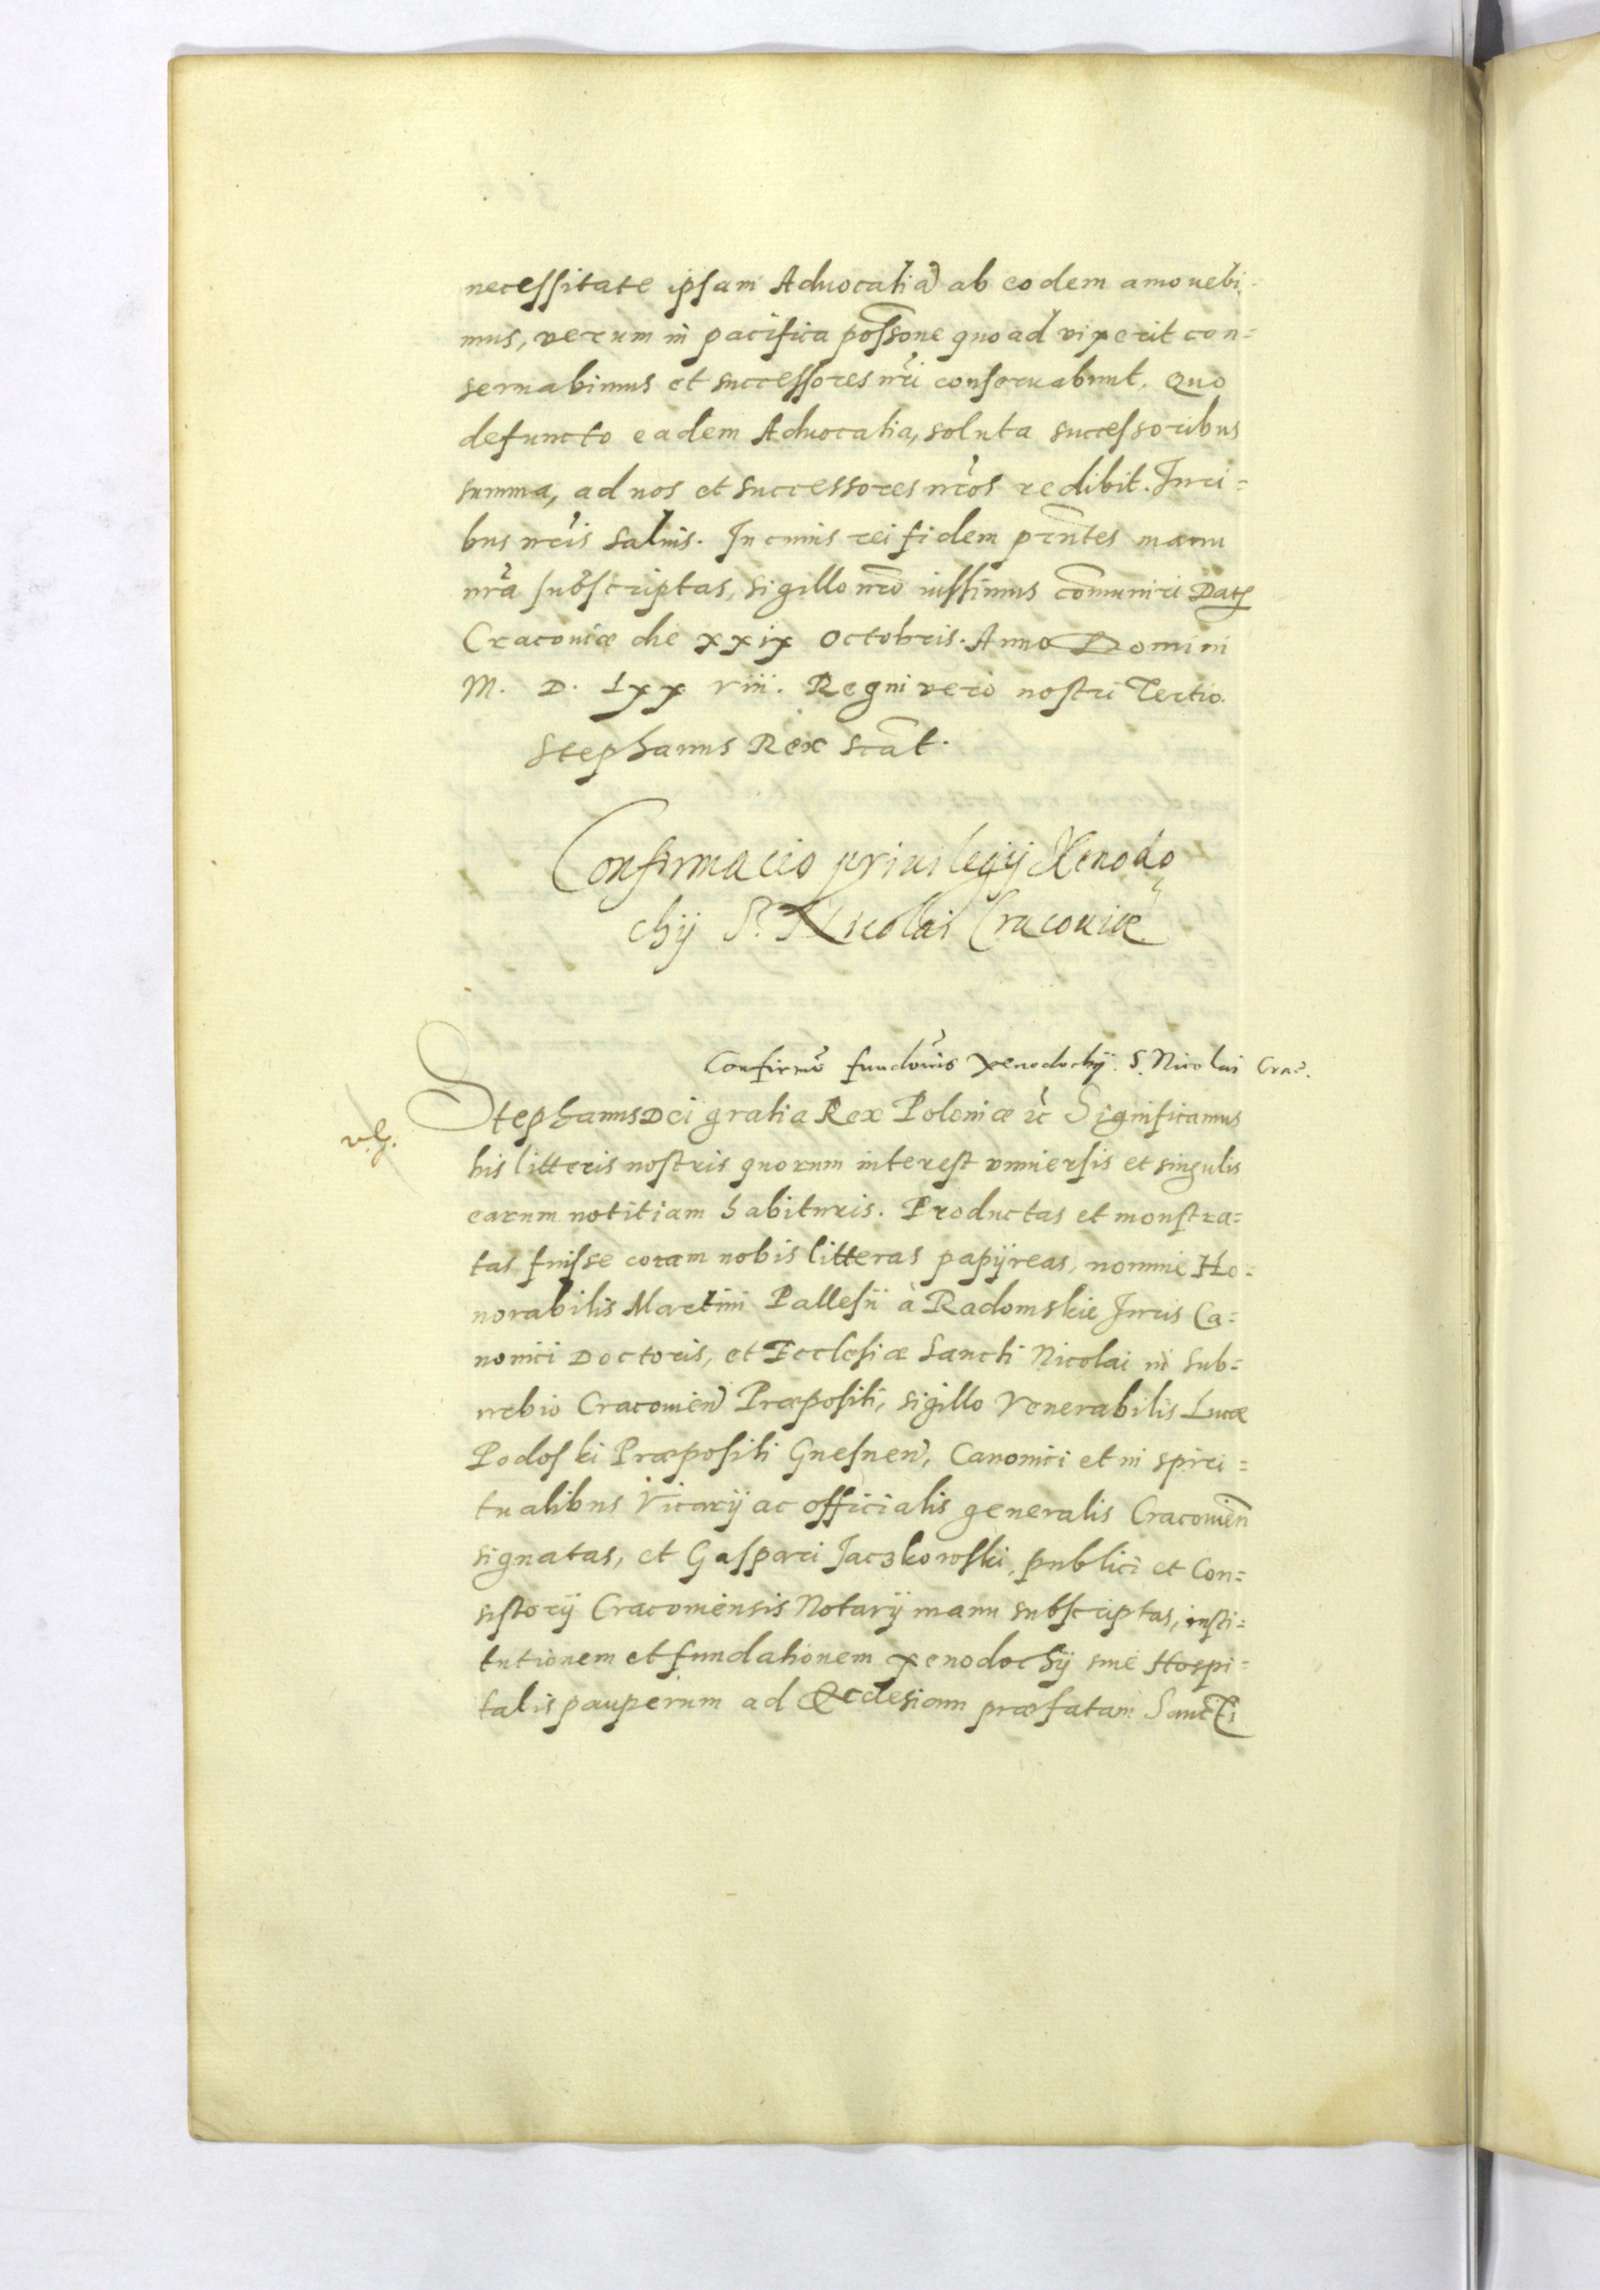 necessitate ipsam Aduocatia ab eodem amouebi-
mus, verum in pacifica possone quoad vixerit con=
seruabimus et successores nri conseruabunt. Quo
defuncto eadem Aduocatia, soluta successoribus
summa, ad nos et successores nros redibit. Juri=
bus nris saluis. In cuius rei fidem prntes manu
nra subscriptas, sigillo nro iussimus comuniri Dat
Cracouiæ die xxix Octobris. Anno Domini
M. D. Lxx viii. Regni vero nostri Tertio.
Stephanus Rex scat.
Confirmacio priuilegij Xenodo
chij S. Nicolai Cracouiæ
Confirmo fundonis Xenodochij S. Nicolai Crac.
Stephanus Dei gratia Rex Poloniæ rc Significamus
his litteris nostris quorum interest vniuersis et singulis
earum notitiam habituris. Productas et monstra=
tas fuisse coram nobis litteras papijreas, nomine Ho=
norabilis Martini Pallesii à Radomskie Juris Ca=
nonici Doctoris, et Ecclesiæ Sancti Nicolai in sub=
urbio Cracouien Præpositi, sigillo Venerabilis Lucæ
Podoski Præpositi Gnesnen, Canonici et in spiri=
tualibus Vicarij ac officialis generalis Cracouien
signatas, et Gaspari Jaczkowski, publici et Con=
sistorij Cracouiensis Notarij manu subscriptas, insti=
tutionem et fundationem xenodochij siue Hospi=
talis pauperum ad Ecclesiam præfatam Sancti